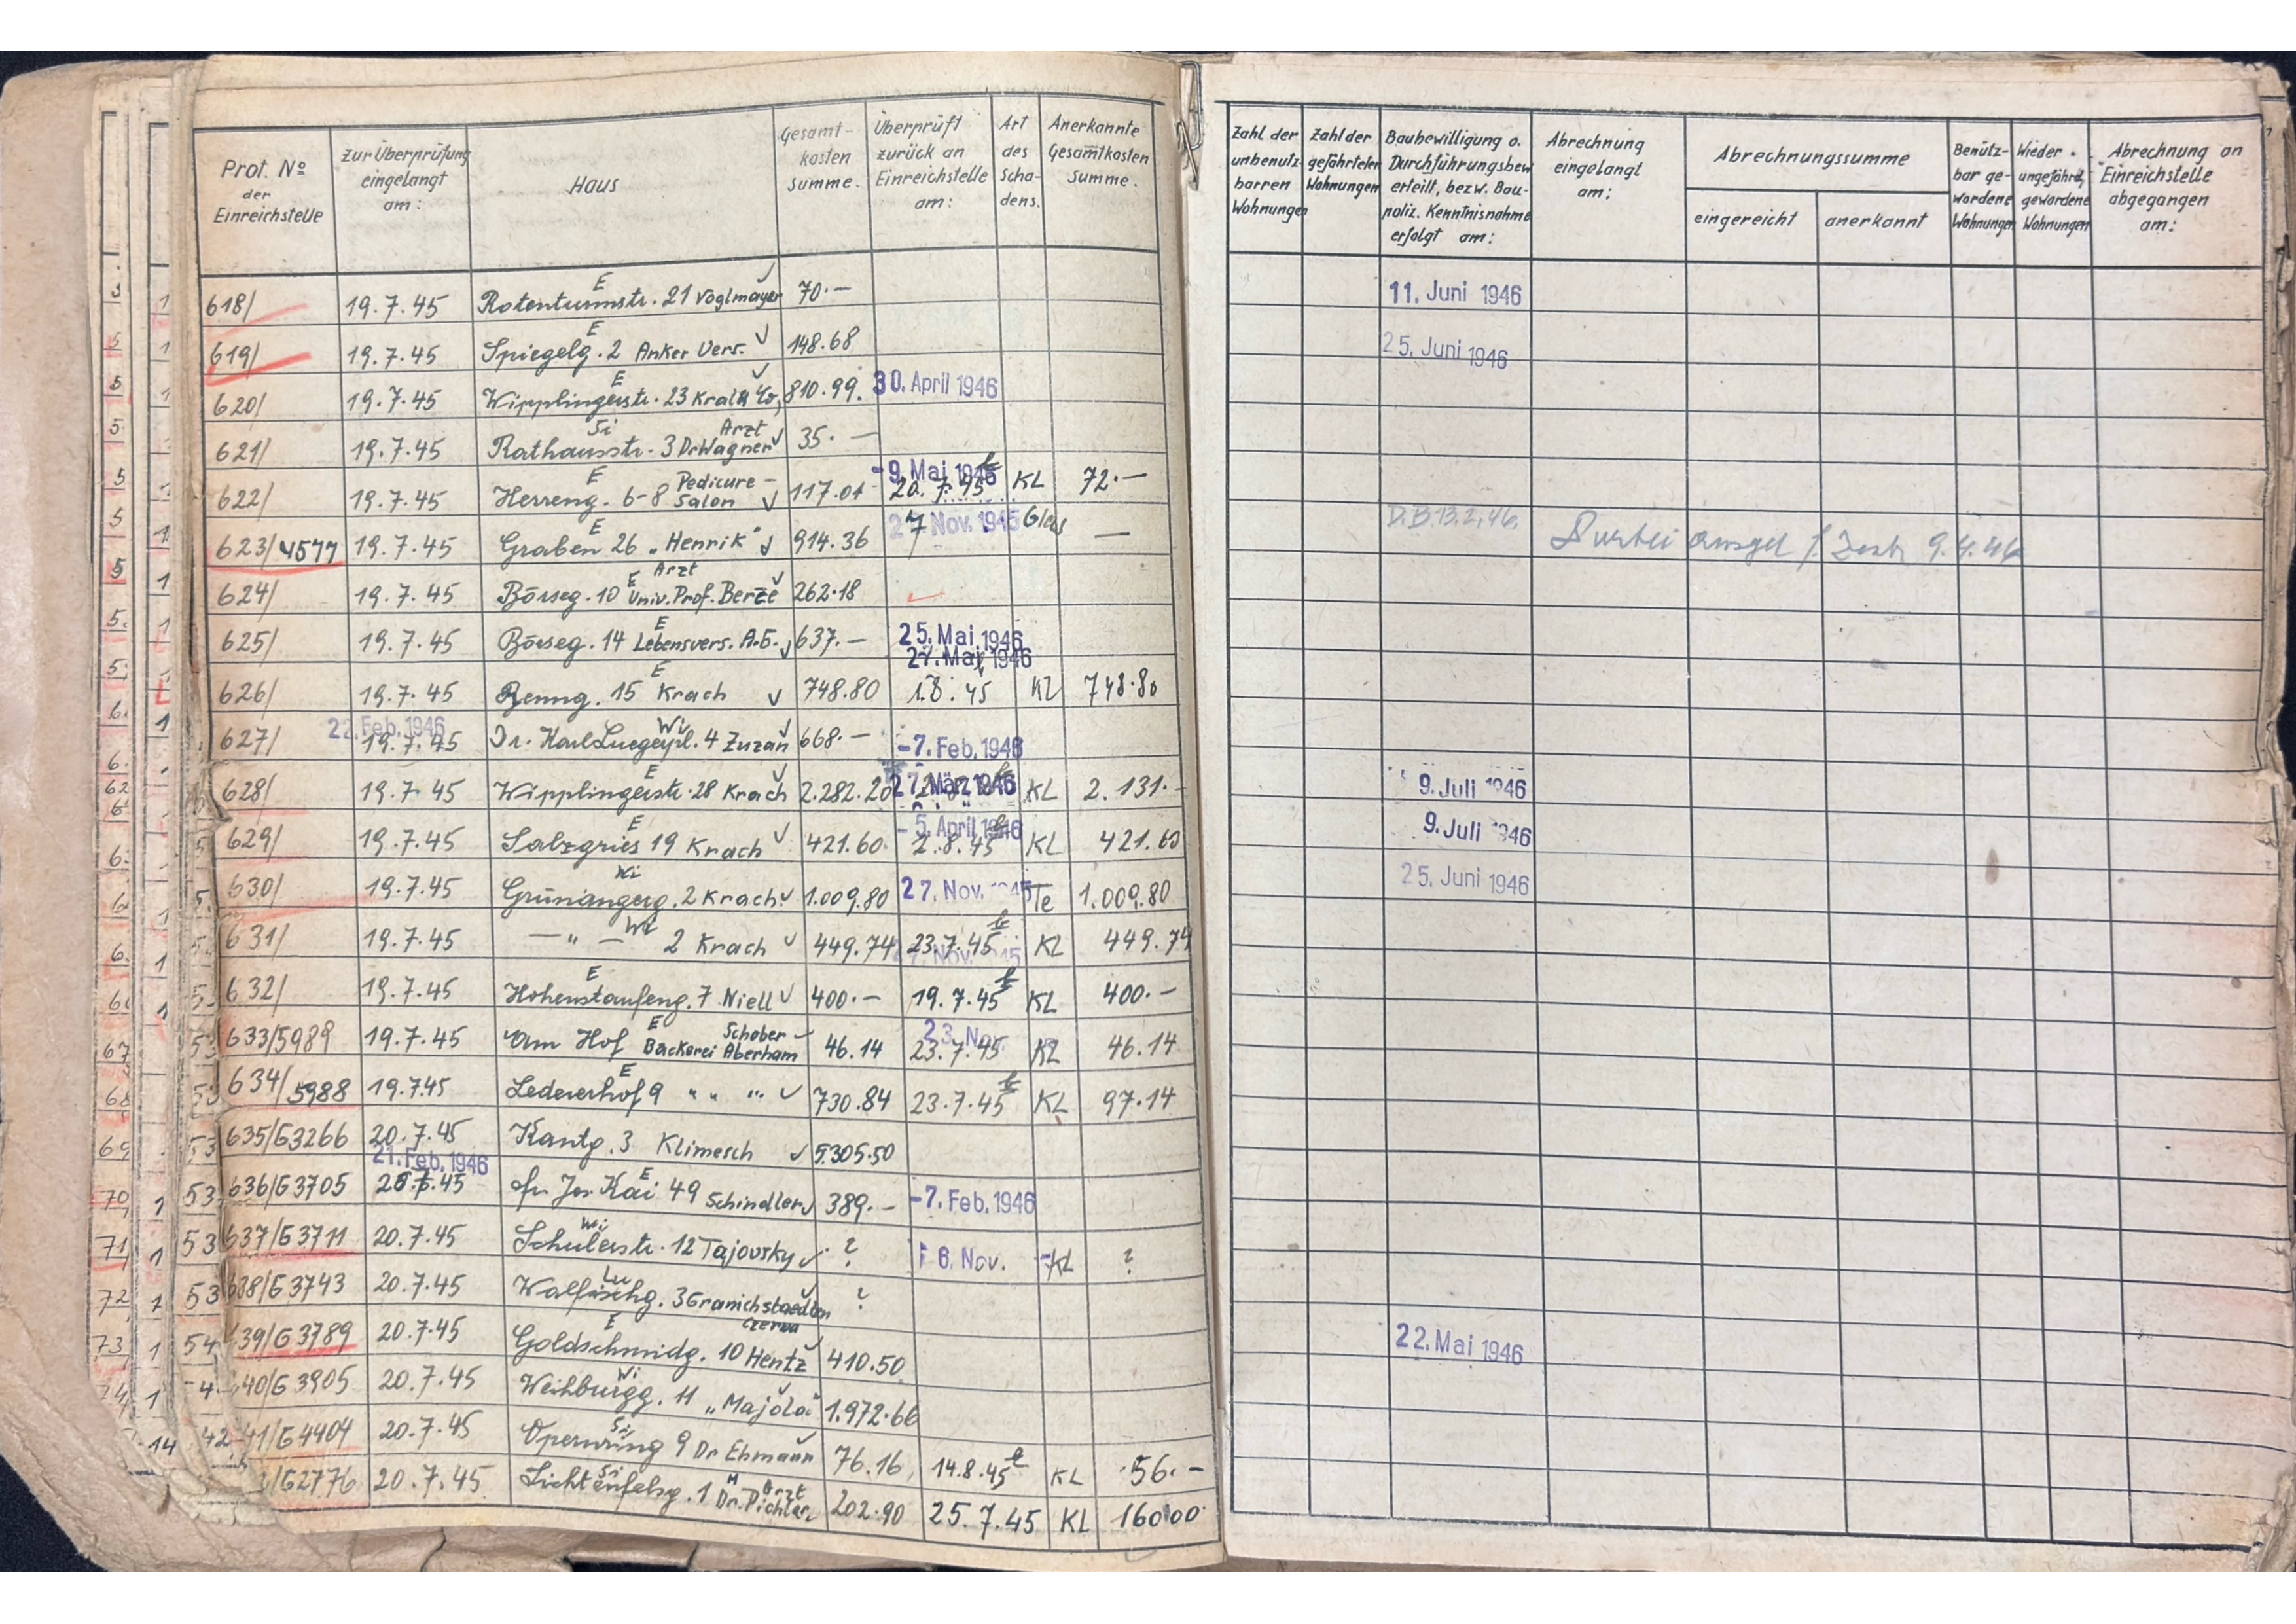 Prot. Nº der Einreichstelle | Zur Überprüfung eingelangt am: | Haus | Gesamt-kosten summe. | Überprüft zurück an Einreichstelle am: | Art des Scha-dens. | Anerkannte Gesamtkosten Summe. | Zahl der unbenutz-barren Wohnungen | Zahl der gefährteten Wohnungen | Baubewilligung o. Durchführungsbew. erteilt, bezw. Bau-poliz. Kenntnisnahme erfolgt am: | Abrechnung eingelangt am: | Abrechnungssumme eingereicht | anerkannt | Benütz-bar ge-wordene Wohnungen | Wieder ungefährd, gewordene Wohnungen | Abrechnung an Einreichstelle abgegangen am:
618/ 19.7.45 Rotenturmstr. 21 Voglmayer E 70.— 11. Juni 1946
619/ 19.7.45 Spiegelg. 2 Anker Vers. E 148.68 25. Juni 1946
620/ 19.7.45 Wipplingerstr. 23 Kral & Co, E 810.99. 30. April 1946
621/ 19.7.45 Rathausstr. 3 Dr Wagner Arzt Si 35.—
622/ 19.7.45 Herreng. 6-8 Pedicure-Salon E 117.01 -9. Mai 1946 20.7.45 KL 72.—
623/4577 19.7.45 Graben 26 „Henrik" E 914.36 27 Nov. 1945 Glas — D.B. 13.2.46. 9.4.46
624/ 19.7.45 Börseg. 10 Univ. Prof. Berze Arzt E 262.18
625/ 19.7.45 Börseg. 14 Lebensvers. A.G. E 637.— 25. Mai 1946 27. Mai 1946
626/ 19.7.45 Renng. 15 Krach E 748.80 1.8.45 KL 748.80
627/ 22. Feb. 1946 19.7.45 Dr. Karl Luegerpl. 4 Zuzan Wi 668.— -7. Feb. 1946
628/ 19.7.45 Wipplingerstr. 28 Krach E 2.282.20 27. März 1946 KL 2.131.- 9. Juli 1946
629/ 19.7.45 Salzgries 19 Krach E 421.60. -5. April 1946 2.8.45 KL 421.60 9. Juli 1946
630/ 19.7.45 Grünangerg. 2 Krach Wi 1.009.80 27. Nov. 1945 Te 1.009.80 25. Juni 1946
631/ 19.7.45 — " — 2 Krach Wi 449.74 23.7.45 27. Nov. 1945 KL 449.74
632/ 19.7.45 Hohenstaufeng. 7 Niell E 400.— 19.7.45 KL 400.—
633/5989 19.7.45 Am Hof Bäckerei Schober Aberham E 46.14 23. Nov. 23.7.45 KL 46.14
634/5988 19.7.45 Ledererhof 9 " " " E 730.84 23.7.45 KL 97.14
635/G3266 20.7.45 Kantg. 3 Klimesch 5.305.50
636/G3705 21. Feb. 1946 20.7.45 Fr. Jos. Kai 49 Schindler E 389.— -7. Feb. 1946
637/G3711 20.7.45 Schulerstr. 12 Tajovsky Wi ? 6. Nov. KL ?
638/G3743 20.7.45 Walfischg. 3 Granichstaedten Lu ?
639/G3789 20.7.45 Goldschmidg. 10 Hentz Czerna E 410.50 22. Mai 1946
640/G3905 20.7.45 Weihburgg. 11 „Majola" Wi 1.972.66
41/G4404 20.7.45 Opernring 9 Dr Ehmann Si 76.16 14.8.45 KL 56.—
/G2776 20.7.45 Lichtenfelsg. 1 Dr. Pichler Arzt Si 202.90 25.7.45 KL 160.00